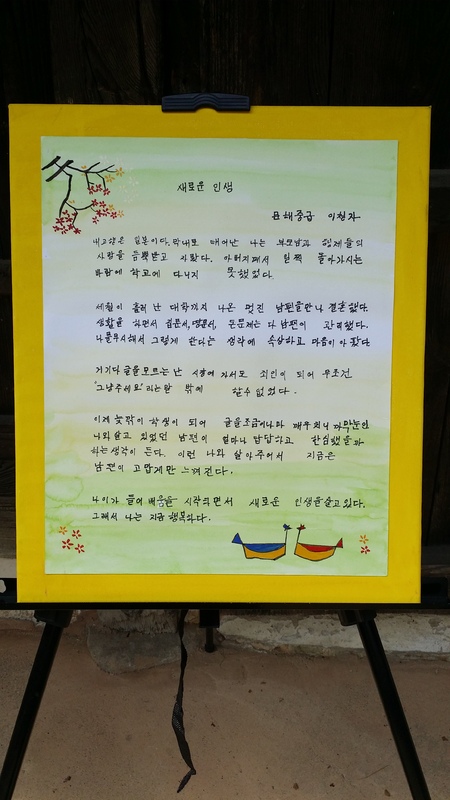 새로운 인생
문해중급 이청자
내고향은 일본이다. 막내로 태어난 나는 부모님과 형제들의
사랑을 듬뿍받고 자랐다. 아버지께서 일찍 돌아가시는
바람에 학교에 다니지 못했었다.
세월이 흘러 난 대학까지 나온 멋진 남편을만나 결혼했다.
생활을 하면서 집문서, 땅문서, 돈문제는 다 남편이 관리했다.
나를무시해서 그렇게 한다는 생각에 속상하고 마음이 아팠다
거기다 글을모르는 난 시장에 가서도 죄인이 되어 무조건
"그냥주세요"라는말 밖에 할수 없었다.
이제 늦깎이 학생이 되어 글을조금이나마 배우고보니 까막눈인
나와살고 있었던 남편이 얼마나 답답하고 한심했을까
하는생각이 든다. 이런 나와 살아주어서 지금은
남편이 고맙게만 느껴진다.
나이가 들어 배움을 시작하면서 새로운 인생을살고있다.
그래서 나는 지금 행복하다.